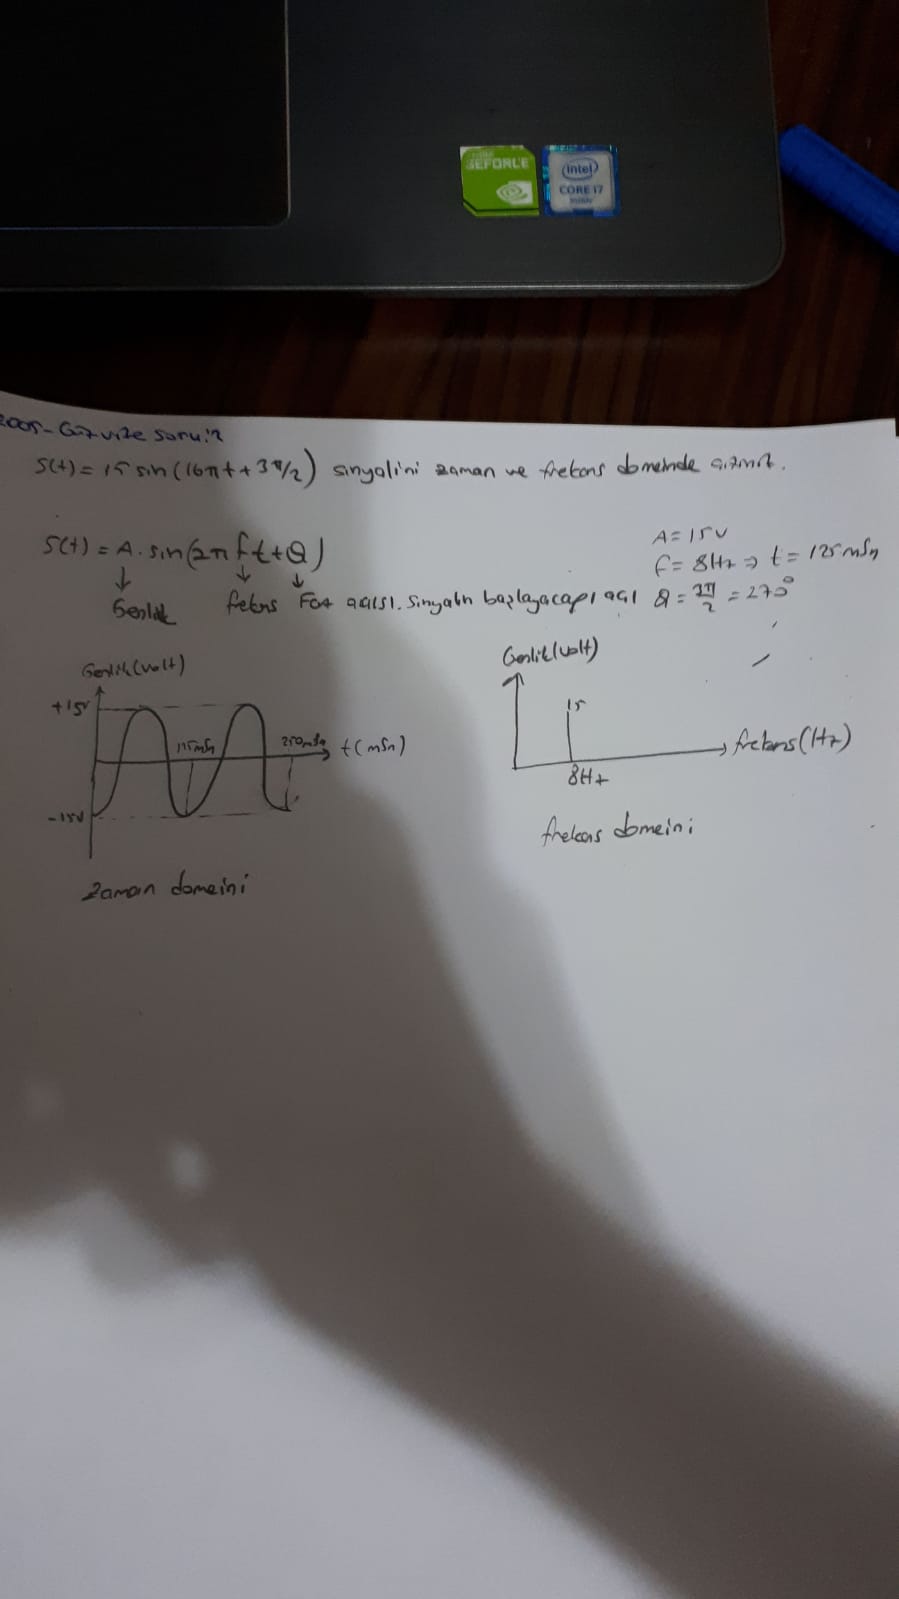 GEFORCE
intel
CORE i7
2005-Güz vize soru:2
S(t) = 15 sin(16πt + 3π/2) sinyalini zaman ve frekans domeinde çiziniz.
S(t) = A. sin(2πft+Q)
A = 15V
f = 8Hz => t = 125mSn
Genlik frekns Faz açısı. Sinyaln başlayacapı açı Q = 3π/2 = 270°
Genlik(volt)
+15V
125mSn
250mSn
t(mSn)
-15V
Zaman domeini
Genlik(volt)
15
frekans(Hz)
8Hz
frekans domeini